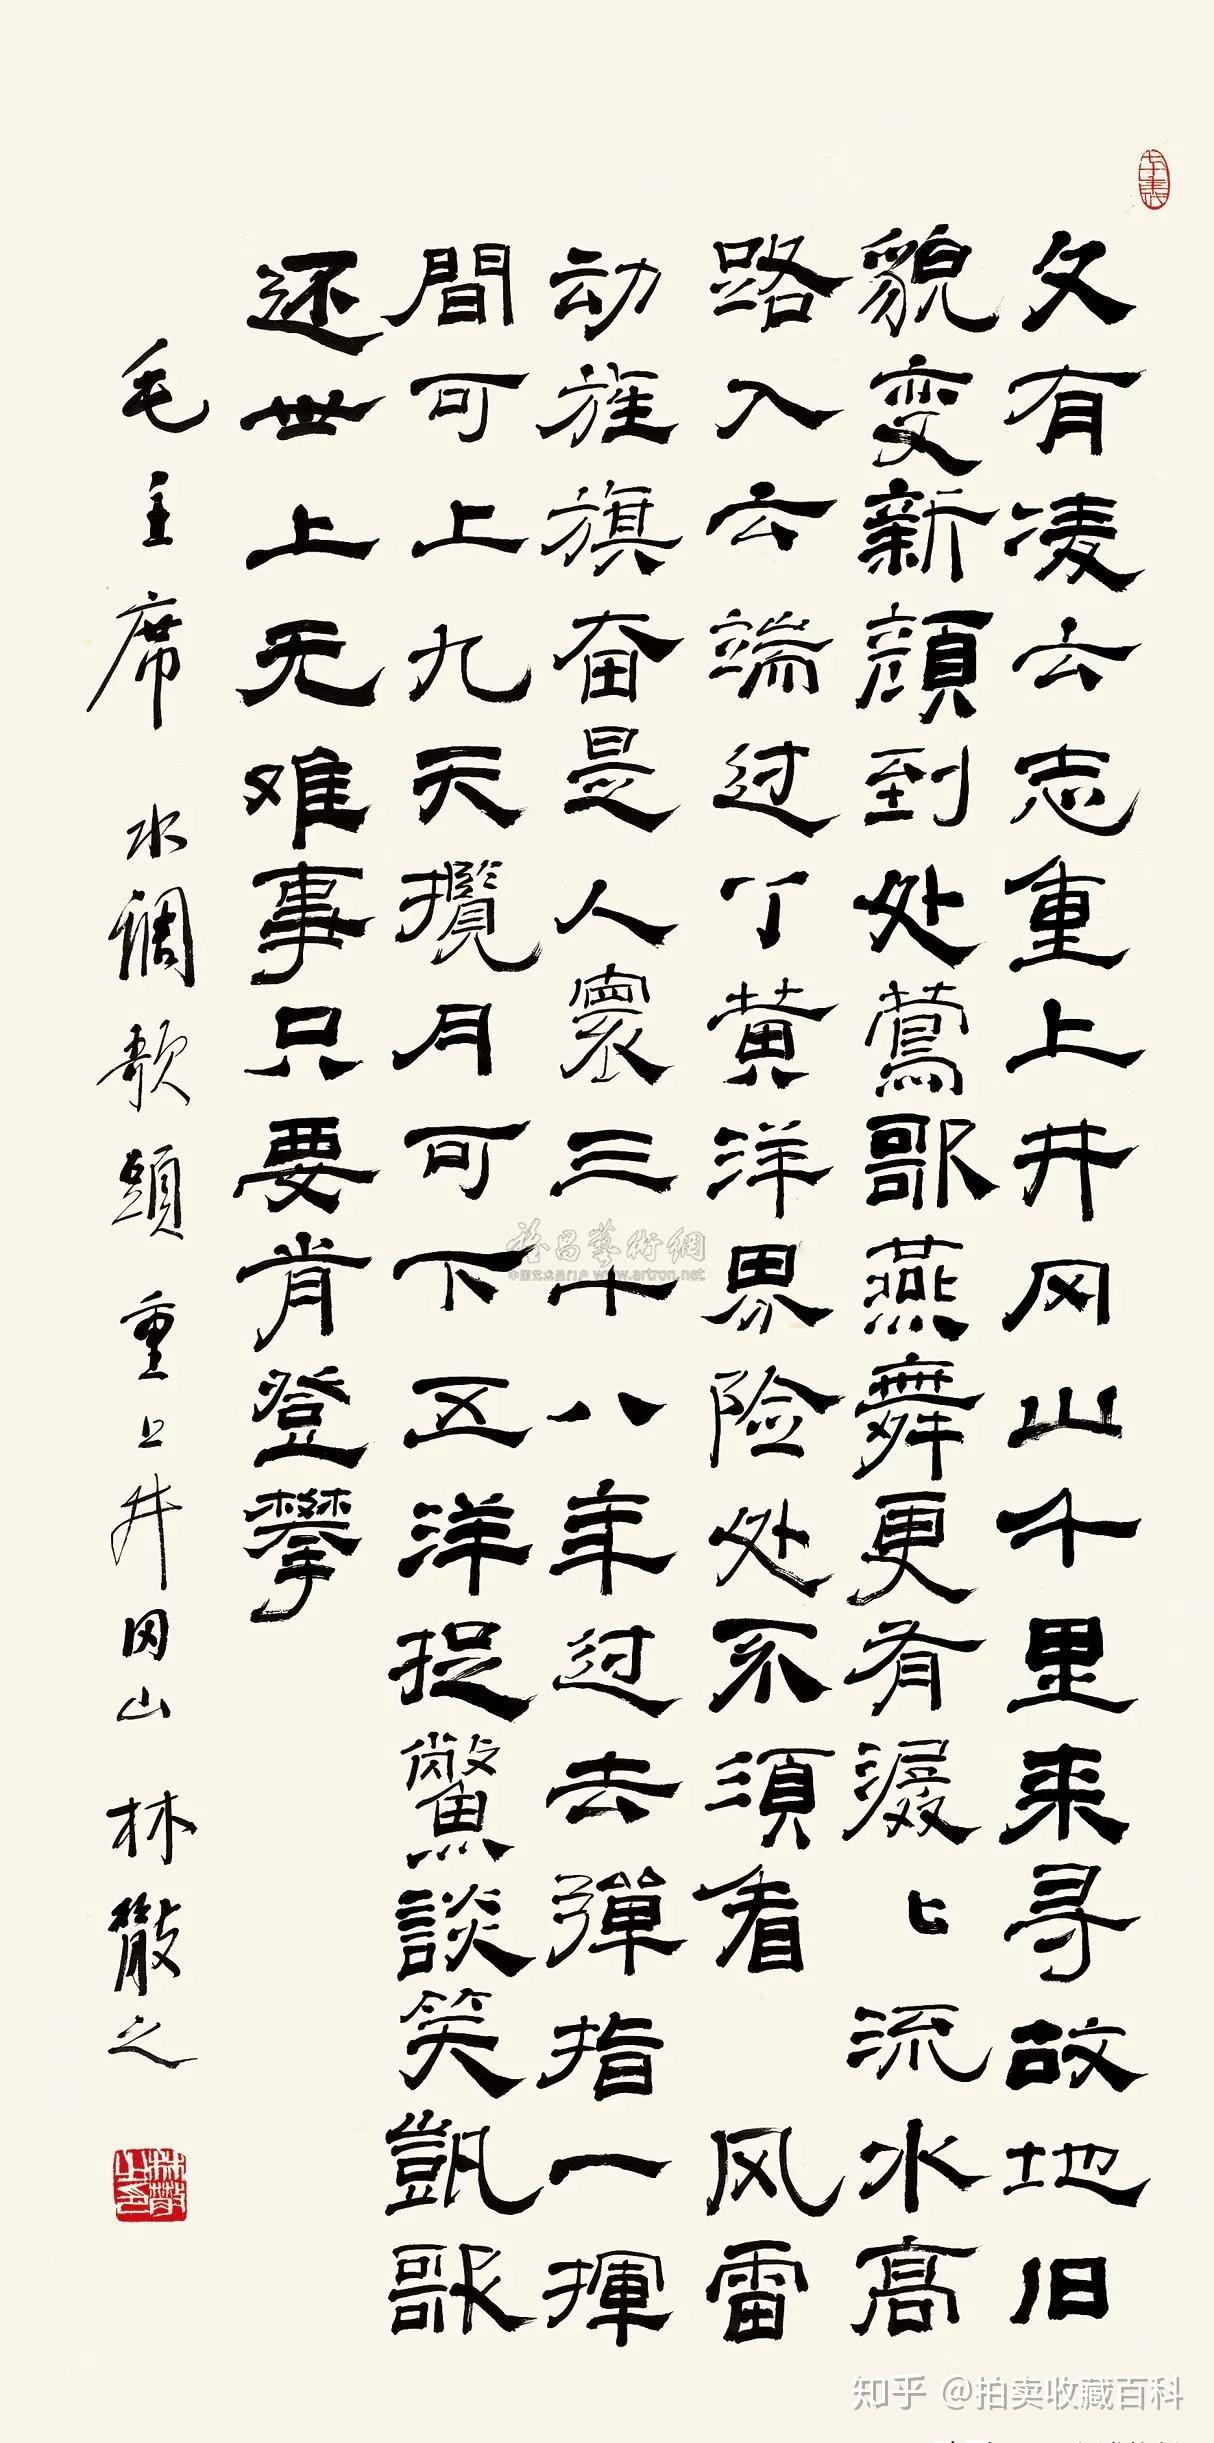 久有凌云志重上井冈山千里来寻故地旧
貌变新顔到处鶯歌燕舞更有潺〻流水高
路入云端过了黄洋界险处不須看 风雷
动旌旗奋是人寰三十八年过去彈指一揮
間可上九天攬月可下五洋捉鱉談笑凱歌
还世上无难事只要肯登攀
毛主席 水調歌頭 重上井冈山 林散之
林散之印
雅昌藝術網
中国艺术品门户 www.artron.net
知乎 @拍卖收藏百科